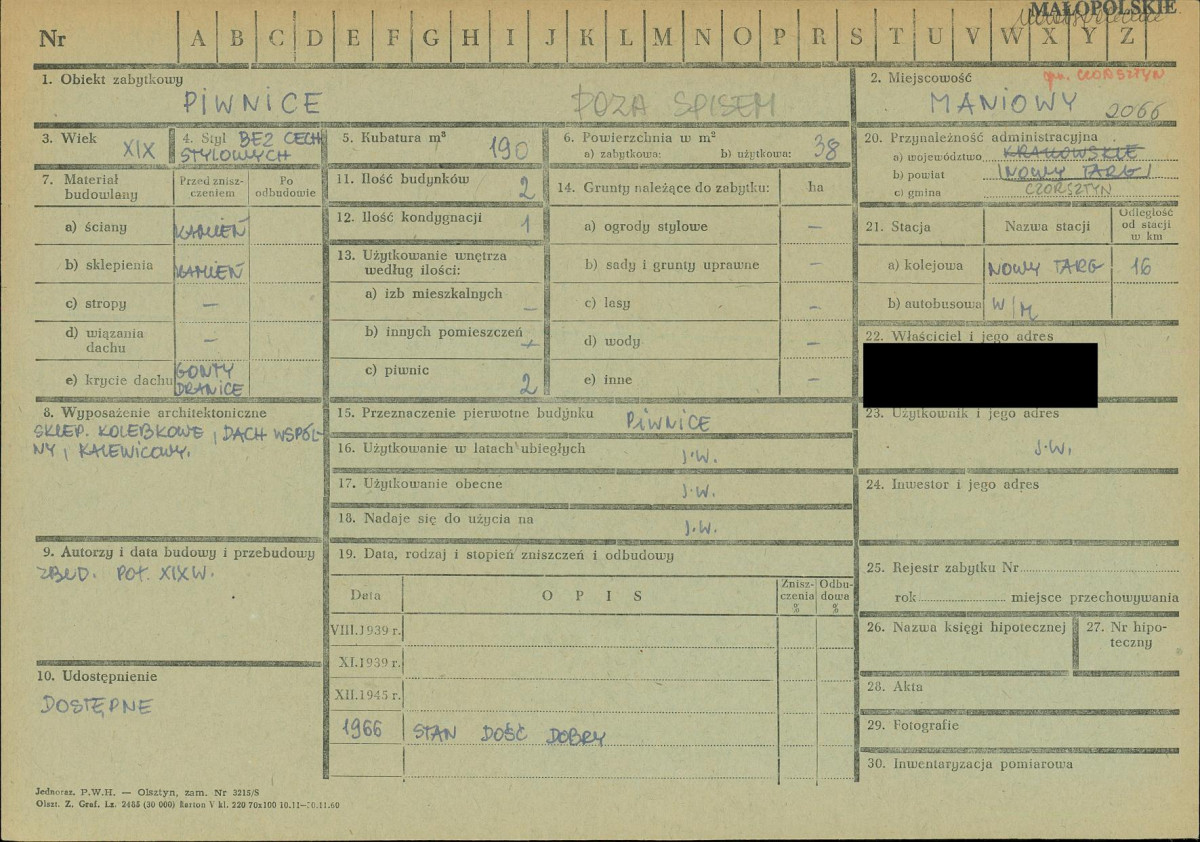 MAŁOPOLSKIE
Nr A B C D E F G H I J K L M N O P R S T U V W X Y Z
1. Obiekt zabytkowy
PIWNICE
POZA SPISEM
2. Miejscowość
gm. CZORSZTYN
MANIOWY
2066
3. Wiek
XIX
4. Styl BEZ CECH
STYLOWYCH
5. Kubatura m³
190
6. Powierzchnia w m²
a) zabytkowa: b) użytkowa: 38
20. Przynależność administracyjna
a) województwo KRAKOWSKIE
b) powiat NOWY TARG
c) gmina CZORSZTYN
7. Materiał
budowlany
Przed znisz-
czeniem
Po
odbudowie
a) ściany KAMIEŃ
b) sklepienia KAMIEŃ
c) stropy —
d) wiązania
dachu —
e) krycie dachu GONTY
DRANICE
11. Ilość budynków 2
12. Ilość kondygnacji 1
13. Użytkowanie wnętrza
według ilości:
a) izb mieszkalnych —
b) innych pomieszczeń —
c) piwnic 2
14. Grunty należące do zabytku: ha
a) ogrody stylowe —
b) sady i grunty uprawne —
c) lasy —
d) wody —
e) inne —
21. Stacja Nazwa stacji Odległość
od stacji
w km
a) kolejowa NOWY TARG 16
b) autobusowa W/M
22. Właściciel i jego adres
23. Użytkownik i jego adres
J.W.
24. Inwestor i jego adres
8. Wyposażenie architektoniczne
SKLEP. KOLEBKOWE, DACH WSPÓL-
NY, KALENICOWY.
15. Przeznaczenie pierwotne budynku PIWNICE
16. Użytkowanie w latach ubiegłych J.W.
17. Użytkowanie obecne J.W.
18. Nadaje się do użycia na J.W.
9. Autorzy i data budowy i przebudowy
ZBUD. POŁ. XIX W.
10. Udostępnienie
DOSTĘPNE
19. Data, rodzaj i stopień zniszczeń i odbudowy
Data OPIS Znisz-
czenia
% Odbu-
dowa
%
VIII.1939 r.
XI.1939 r.
XII.1945 r.
1966 STAN DOŚĆ DOBRY
25. Rejestr zabytku Nr
rok miejsce przechowywania
26. Nazwa księgi hipotecznej
27. Nr hipo-
teczny
28. Akta
29. Fotografie
30. Inwentaryzacja pomiarowa
Jednoraz. P.W.H. — Olsztyn, zam. Nr 3215/S
Olszt. Z. Graf. Lz. 2485 (30 000) Karton V kl. 220 70x100 10.11—30.11.60